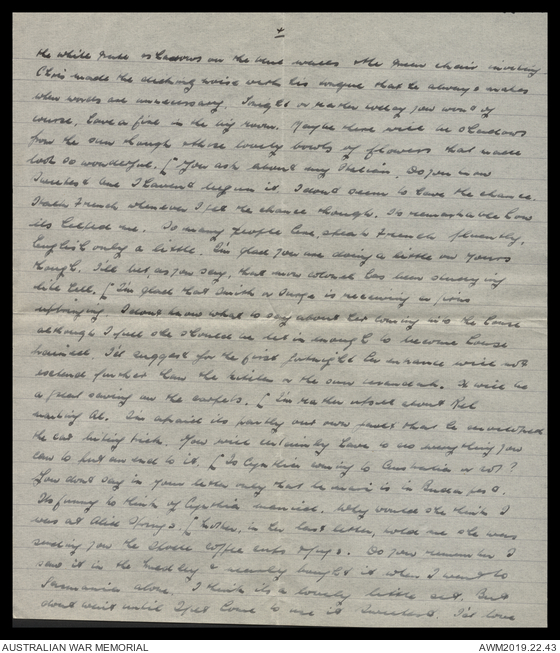 4
the white wall shadows on the blue walls & the green chair inviting
Chris made the clicking noise with his tongue that he always makes
when words are unnecessary. Tonight or rather today you won't of
course, have a fire in the big room. Maybe there will be shadows
from the sun though & those lovely bowls of flowers that made
look so wonderful. [ You ask about my Italian. Do you know
Sweetest one I haven't begun it. I don't seem to have the chance.
I talk French whenever I get the chance though. It's remarkable how
its helped me. So many people here speak French fluently,
English only a little. I'm glad you are doing a little on yours
though. I'll bet, as you say, that now has been studying
like hell. [ I'm glad that Smith or is receiving a
upbringing. I don't know what to say about her coming into the house
although I feel she should be let in enough to become house
trained. I'd suggest for the first fortnight her entrance will not
extend further than the kitchen or the sun verandah. It will be
a great saving on the carpets. [ I'm rather upset about
I'm afraid its partly our own fault that he
the cat trick. You will certainly have to do everything you
can to put an end to it. [ Is Cynthia coming to Australia or not?
You don't say in your letter only that he is in Budapest.
Its funny to think of Cynthia married. Why would she think I
was at Alice Springs. [ Mother, in her last letter, told me she was
sending you the coffee cups & tray. Do you remember I
saw it in the & nearly bought it when I went to
Tasmania alone. I think its a lovely little set. But
don't wait until I get home to use it Sweetest. I'd love
AUSTRALIAN WAR MEMORIAL
AWM2019.22.43